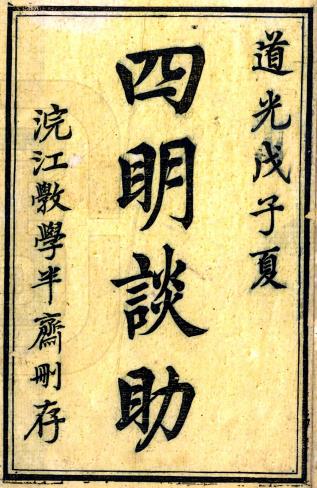 道光戊子夏
四明談助
浣江斆學半齋刪存